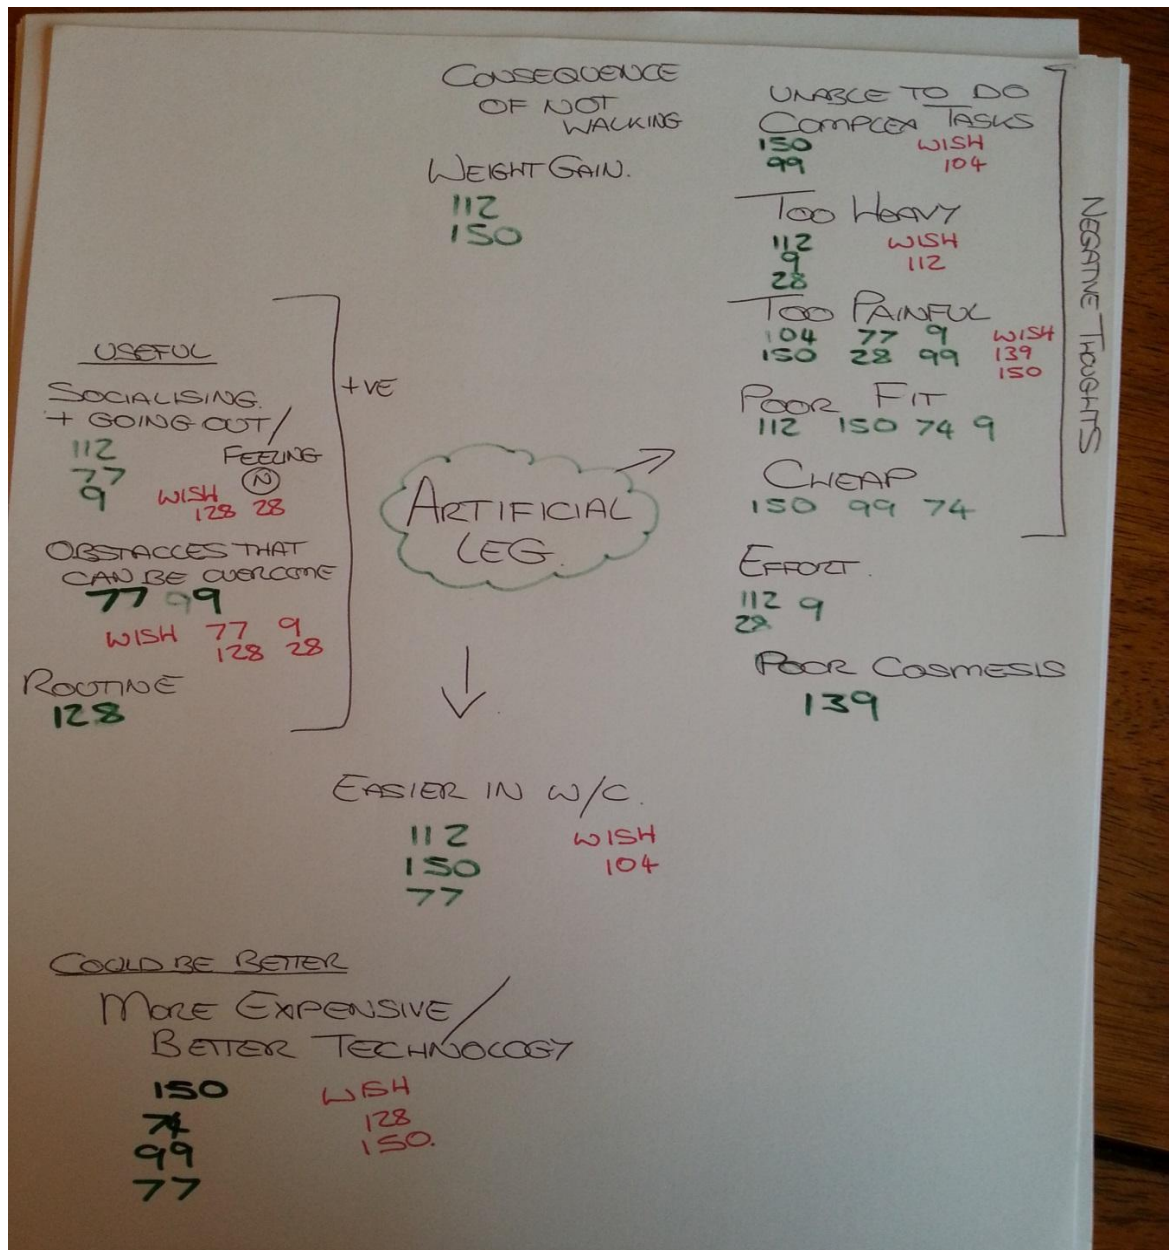 CONSEQUENCE
OF NOT
WALKING
WEIGHT GAIN.
112
150
UNABLE TO DO
COMPLEX TASKS
150 WISH
99 104
TOO HEAVY
112 WISH
9 112
28
TOO PAINFUL
104 77 9 WISH
150 28 99 139
150
POOR FIT
112 150 74 9
CHEAP
150 99 74
NEGATIVE THOUGHTS
EFFORT.
112 9
28
POOR COSMESIS
139
USEFUL
SOCIALISING
+ GOING OUT /
FEELING
N
112
77
9
WISH 28
128
OBSTACLES THAT
CAN BE OVERCOME
77 99
WISH 77 9
128 28
ROUTINE
128
+VE
ARTIFICIAL
LEG.
EASIER IN W/C.
112 WISH
150 104
77
COULD BE BETTER
MORE EXPENSIVE /
BETTER TECHNOLOGY
150 WISH
74 128
99 150.
77